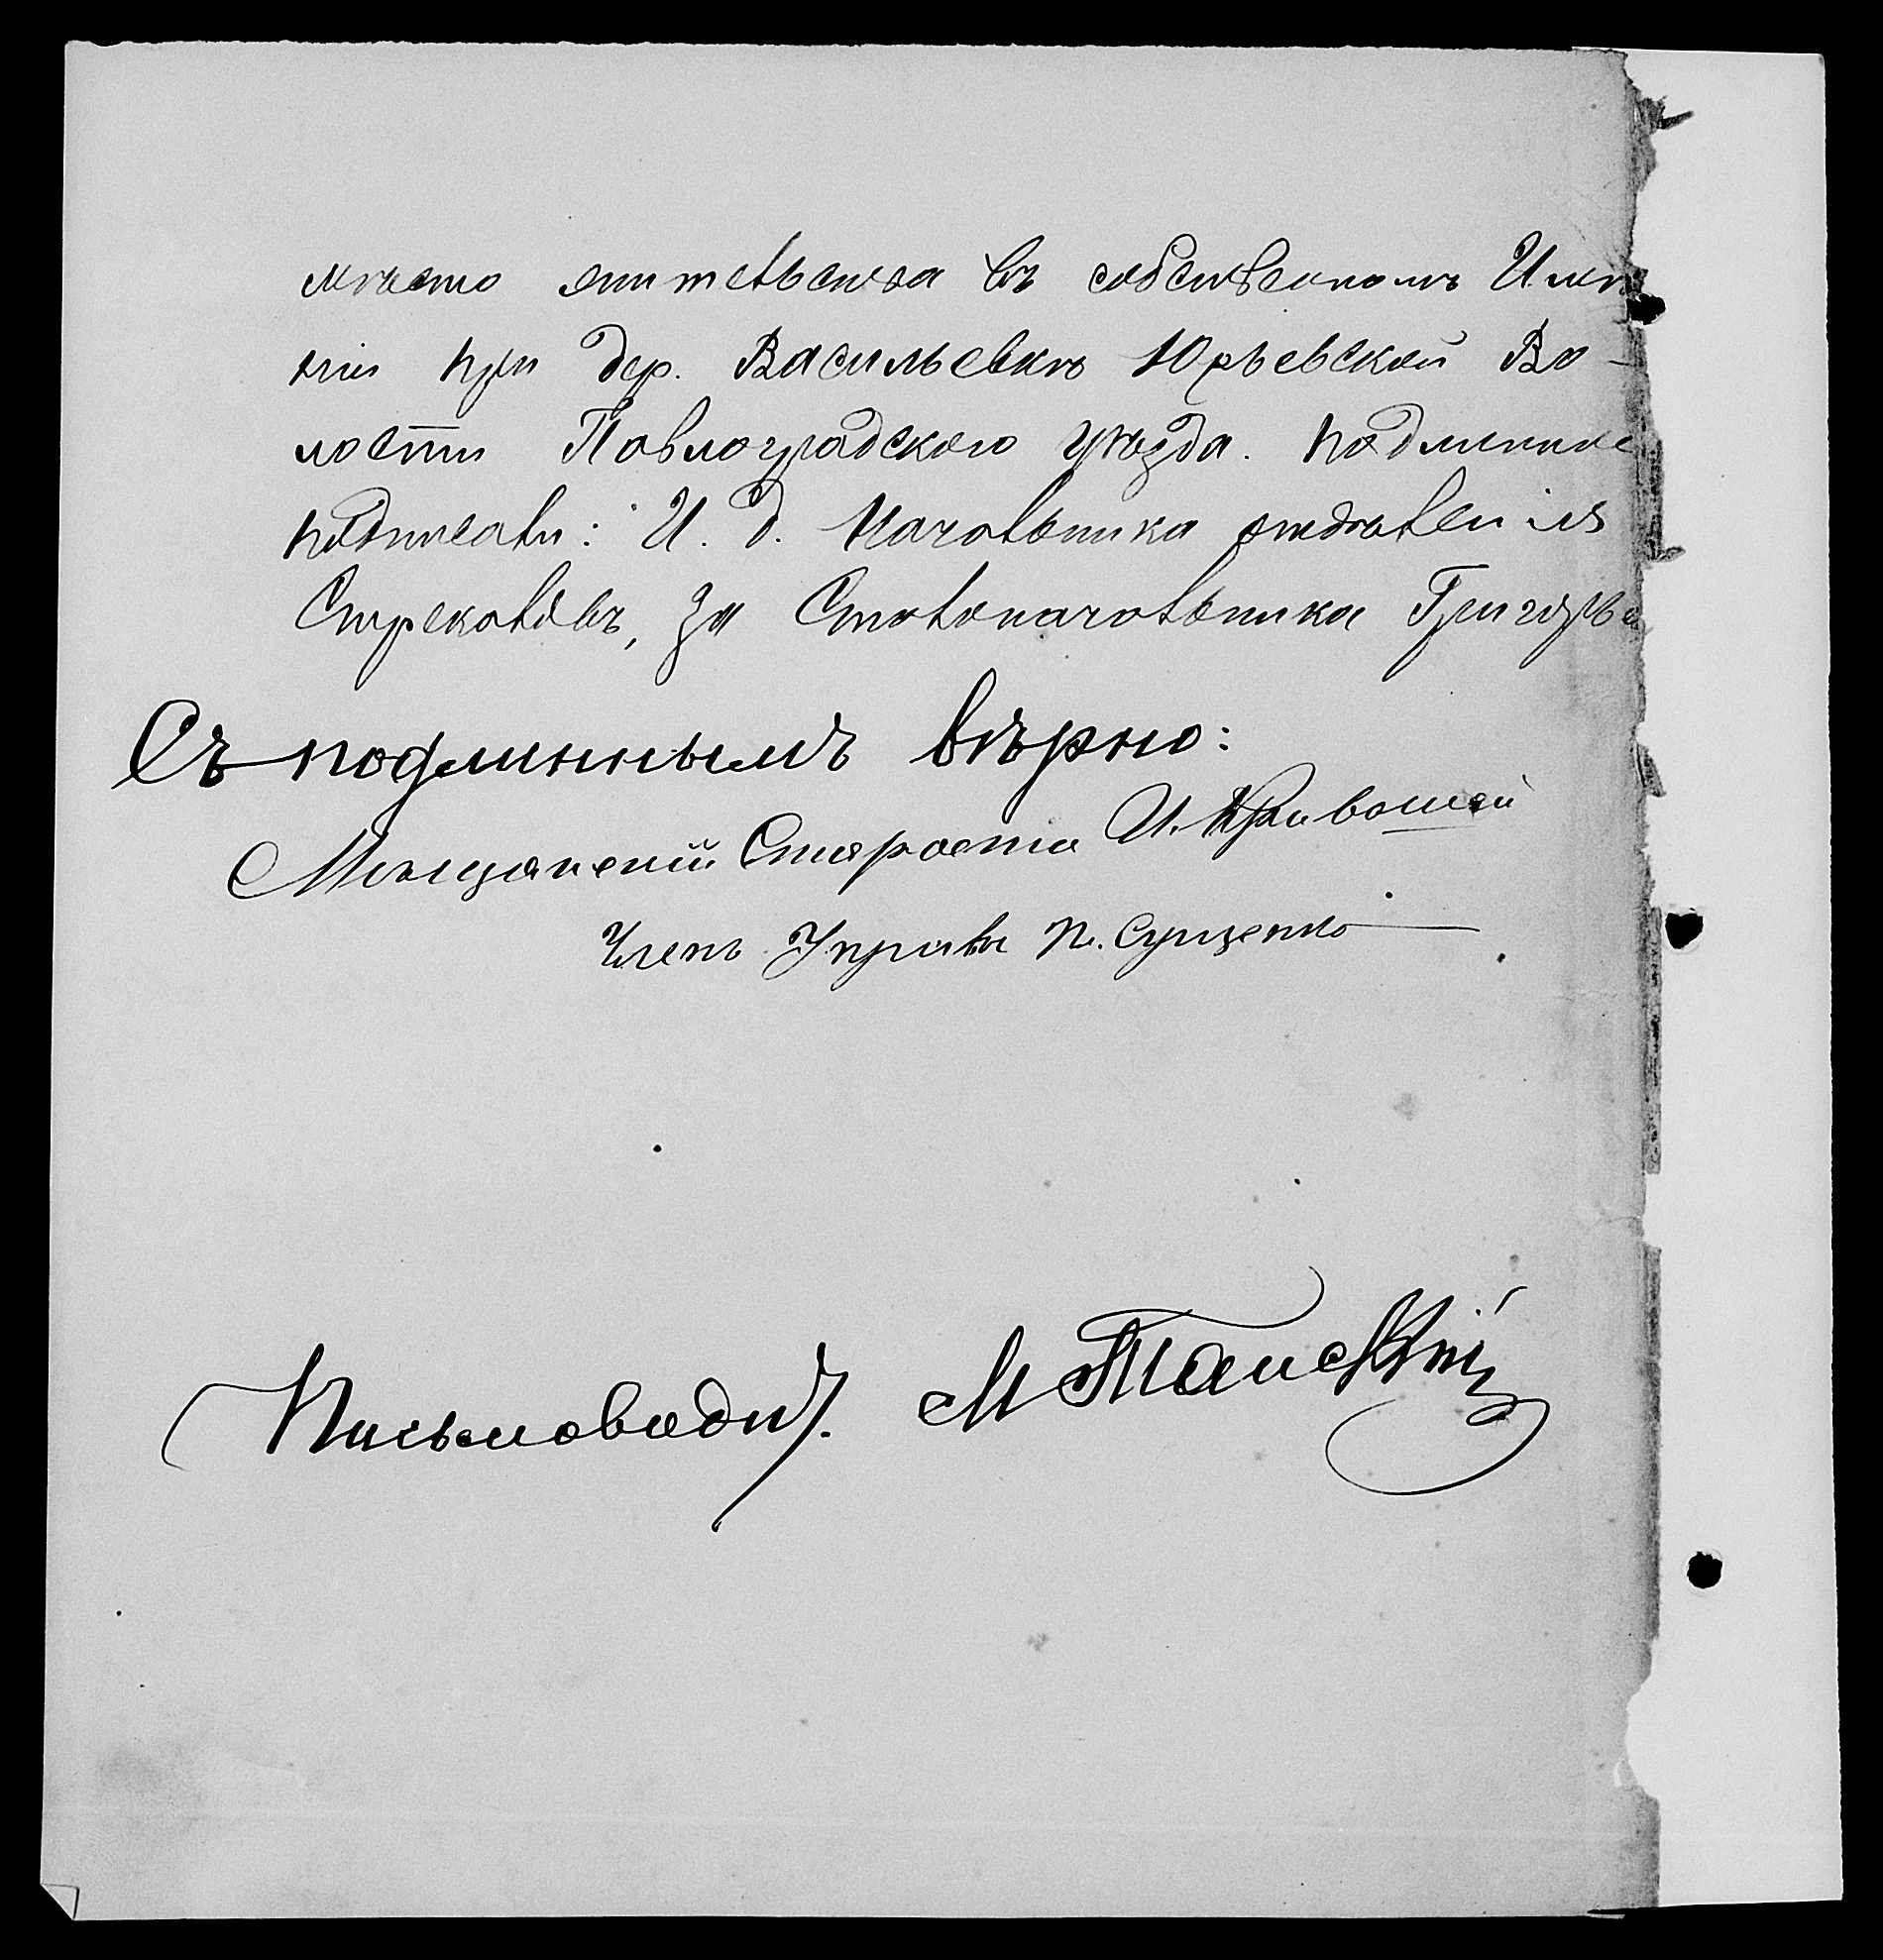 мѣсто жительства въ собственномъ Имѣ
ніи при дер. Васильевкѣ Юрьевской Во-
лости Павлоградскаго уѣзда. Подлинное
подписали: И. д. Начальника отдѣленія
Стрекаловъ, За Столоначальника Григорьев
Съ подлиннымъ вѣрно:
Мѣщанскій Староста И. Кривошей
Членъ Управы П. Сущенко
Письмовод М Танскій